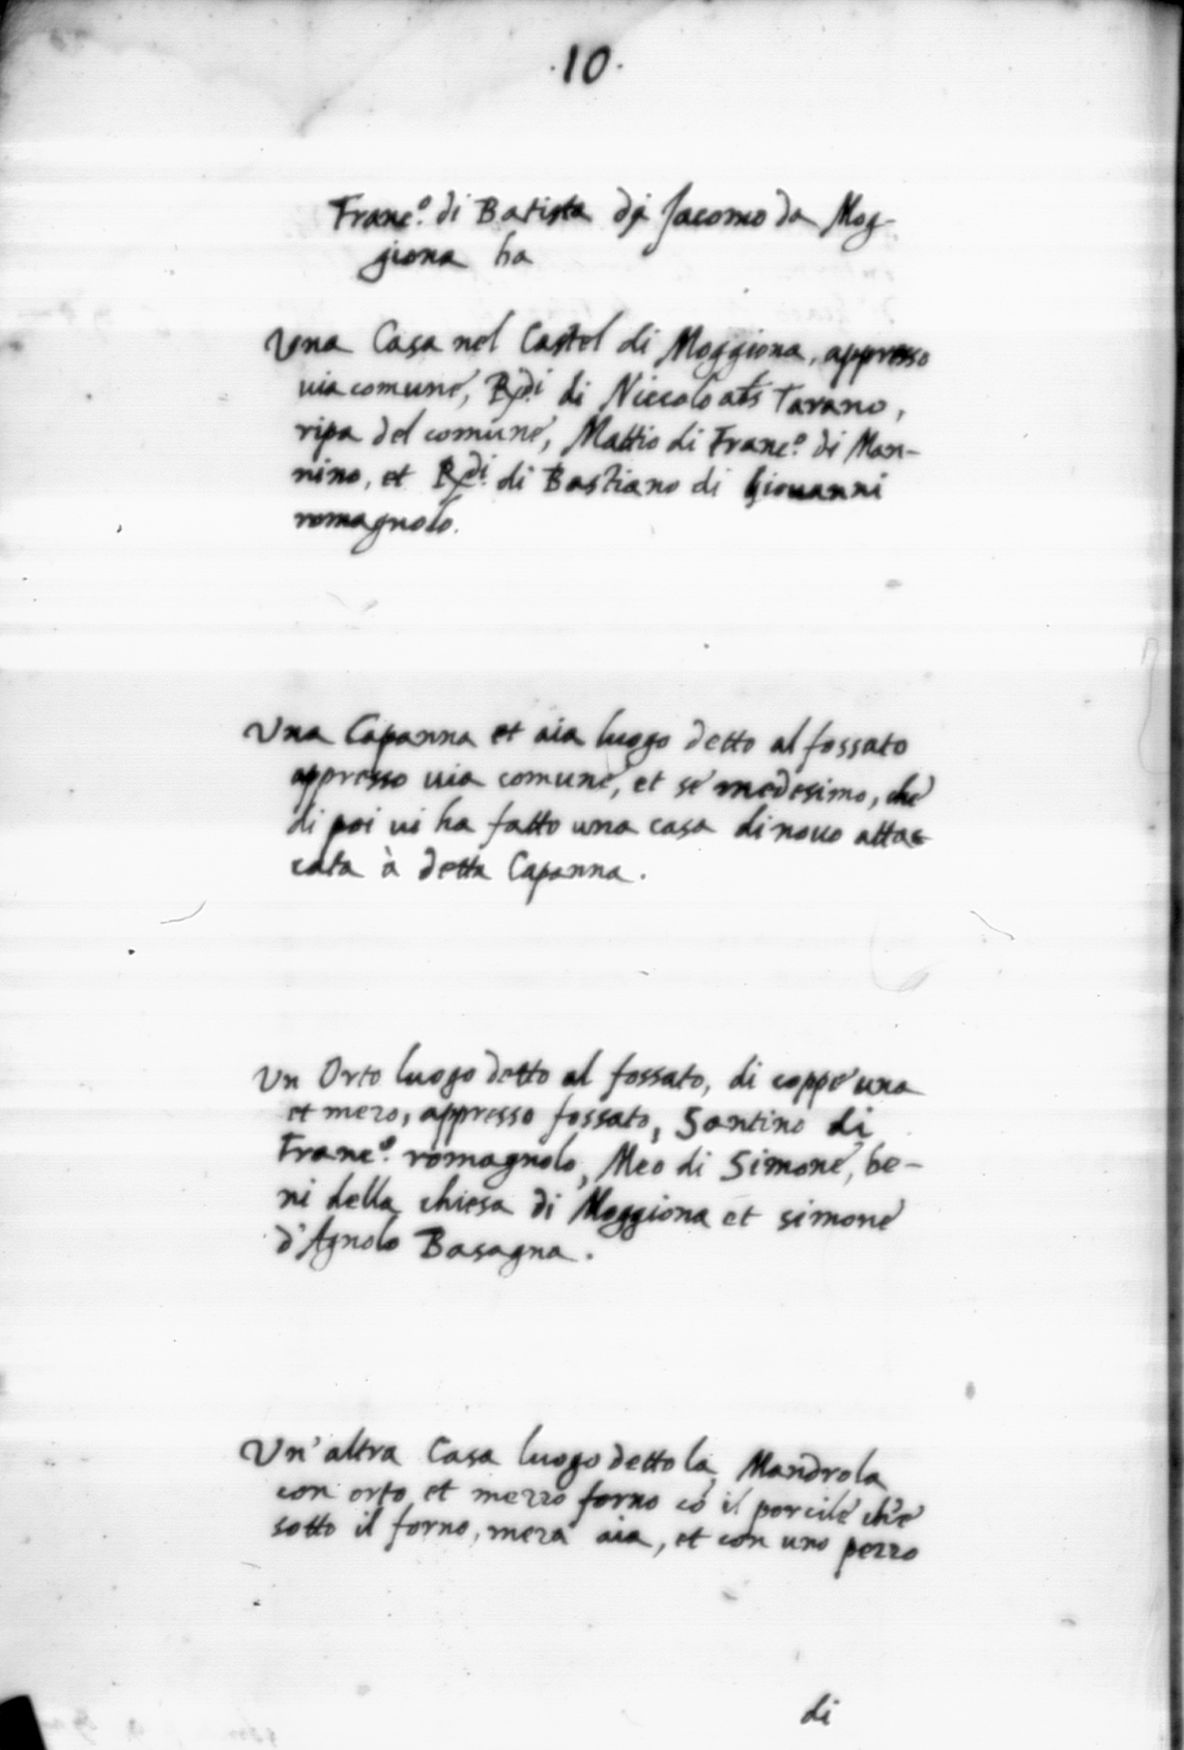 ·10·
Franc.º di Batista di Jacomo da Mog-
giona ha
Una Casa nel Castel di Moggiona, appresso
via comune, Rdi di Niccolo als Tarano,
ripa del comune, Mattio di Franc.º di Man-
nino, et Rdi di Bastiano di Giovanni
romagnolo.
Una Capanna et aia luogo detto al fossato
appresso via comune, et se medesimo, che
di poi vi ha fatto una casa di novo attac
cata à detta Capanna.
Un Orto luogo detto al fossato, di coppe una
et mezo, appresso fossato, Santino di
Franc.º romagnolo, Meo di Simone, be-
ni della chiesa di Moggiona et simone
d'Agnolo Basagna.
Un'altra Casa luogo detto la Mandrola
con orto et mezzo forno cō il porcile ch'è
sotto il forno, meza aia, et con uno pezzo
di